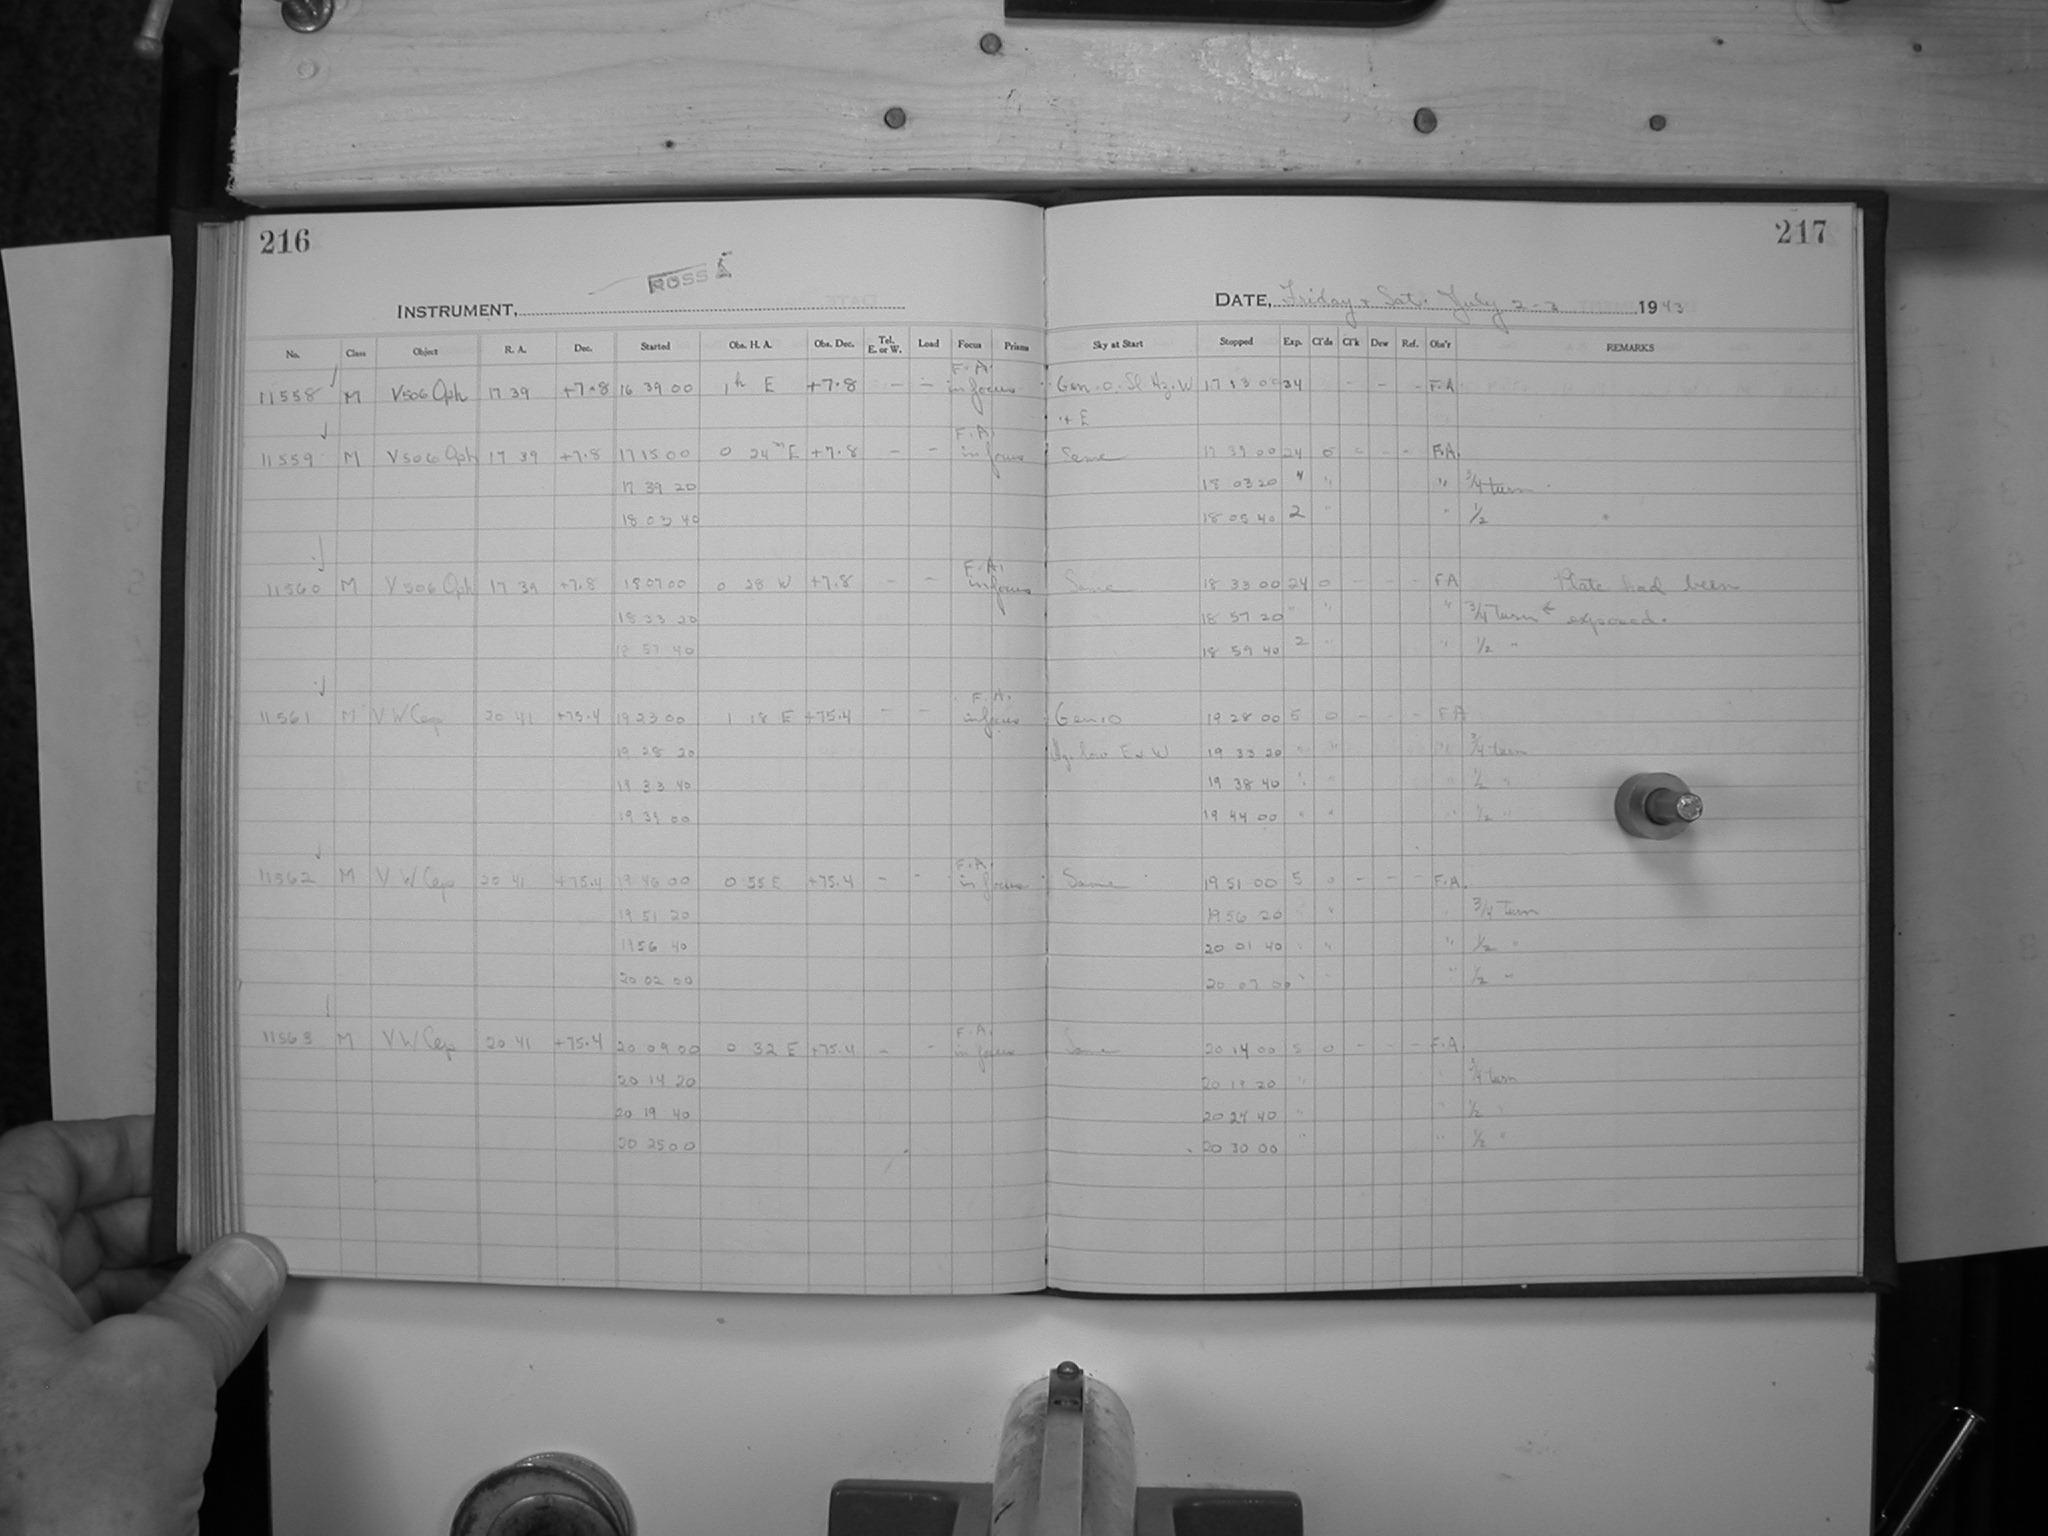 216
217
ROSS
INSTRUMENT,
DATE, Friday + Sat. July 2-3 1943
No. Class Object R. A. Dec. Started Obs. H. A. Obs. Dec. Tel. E. or W. Load Focus Prisms Sky at Start Stopped Exp. Cl'ds Cl'k Dew Ref. Obs'r REMARKS
11558 M V506 Oph 17 39 +7.8 16 39 00 1h E +7.8 – – F.A. in focus Gen. 0. Sl Hz. W 17 13 00 34 – – – F.A
+ E
11559 M V506 Oph 17 39 +7.8 17 15 00 0 24m E +7.8 – – F.A. in focus Same 17 39 00 24 0 – – – F.A.
17 39 20 18 03 20 " " " 3/4 turn
18 03 40 18 05 40 2 " " 1/2 "
11560 M V506 Oph 17 39 +7.8 18 09 00 0 28 W +7.8 – – F.A. in focus Same 18 33 00 24 0 – – – FA Plate had been
18 33 20 18 57 20 " " " 3/4 turn ← exposed.
18 57 40 18 59 40 2 " " 1/2 "
11561 M VW Cep 20 41 +75.4 19 23 00 1 18 E +75.4 – – F.A. in focus Gen. 0 19 28 00 5 0 – – – FA
19 28 20 Hz. low E + W 19 33 20 " " " 3/4 turn
19 33 40 19 38 40 " " " 1/2 "
19 39 00 19 44 00 " " " 1/2 "
11562 M VW Cep 20 41 +75.4 19 46 00 0 55 E +75.4 – – F.A. in focus Same 19 51 00 5 0 – – – F.A.
19 51 20 19 56 20 " " " 3/4 turn
19 56 40 20 01 40 " " " 1/2 "
20 02 00 20 07 00 " " " 1/2 "
11563 M VW Cep 20 41 +75.4 20 09 00 0 32 E +75.4 – – F.A. in focus Same 20 14 00 5 0 – – – F.A
20 14 20 20 19 20 " " 3/4 turn
20 19 40 20 24 40 " " 1/2 "
20 25 00 20 30 00 " " 1/2 "